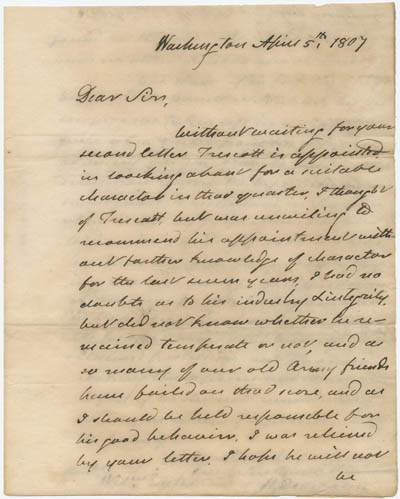 Washington April 5th, 1807
Dear Sir,
Without waiting for your
second letter Trescott is appointed
in looking about for a suitable
character in that quarter, I thought
of Trescott, but was unwilling to
recommend his appointment with-
out farther knowledge of character
for the last seven years, I had no
doubts as to his industry & integrity,
but did not know whether he re-
mained temperate or not, and as
so many of our old Army friends
have failed on that score, and as
I should be held responsible for
his good behavior, I was relieved
by your letter. I hope he will not
be